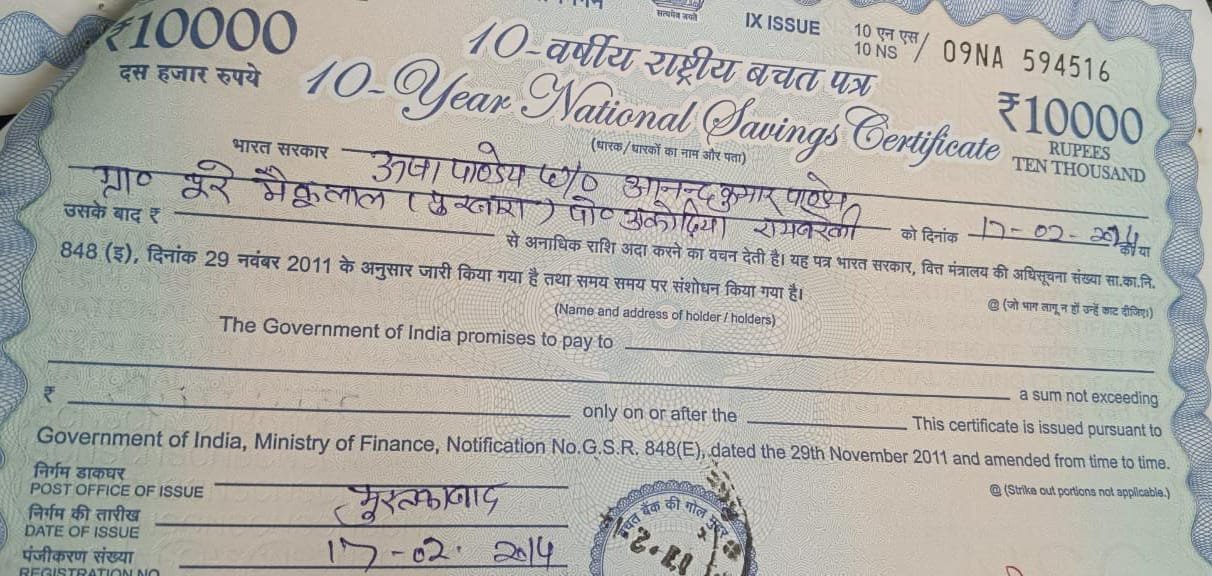 ₹10000
दस हजार रुपये
सत्यमेव जयते
IX ISSUE
10 एन एस/
10 NS
09NA 594516
10-वर्षीय राष्ट्रीय बचत पत्र
10-Year National Savings Certificate
₹10000
RUPEES
TEN THOUSAND
(धारक/धारकों का नाम और पता)
भारत सरकार ऊषा पाण्डेय आनन्द कुमार पाण्डेय
ग्रा० पूरे मैकूलाल पो०
उसके बाद ₹ को दिनांक 17-02-2014 को या
से अनाधिक राशि अदा करने का वचन देती है। यह पत्र भारत सरकार, वित्त मंत्रालय की अधिसूचना संख्या सा.का.नि.
848 (इ), दिनांक 29 नवंबर 2011 के अनुसार जारी किया गया है तथा समय समय पर संशोधन किया गया है।
@ (जो भाग लागू न हों उन्हें काट दीजिए।)
(Name and address of holder / holders)
The Government of India promises to pay to
a sum not exceeding
₹ only on or after the This certificate is issued pursuant to
Government of India, Ministry of Finance, Notification No.G.S.R. 848(E), dated the 29th November 2011 and amended from time to time.
@ (Strike out portions not applicable.)
निर्गम डाकघर
POST OFFICE OF ISSUE
निर्गम की तारीख
DATE OF ISSUE 17-02-2014
पंजीकरण संख्या
REGISTRATION NO.
बचत बैंक की गोल मुहर